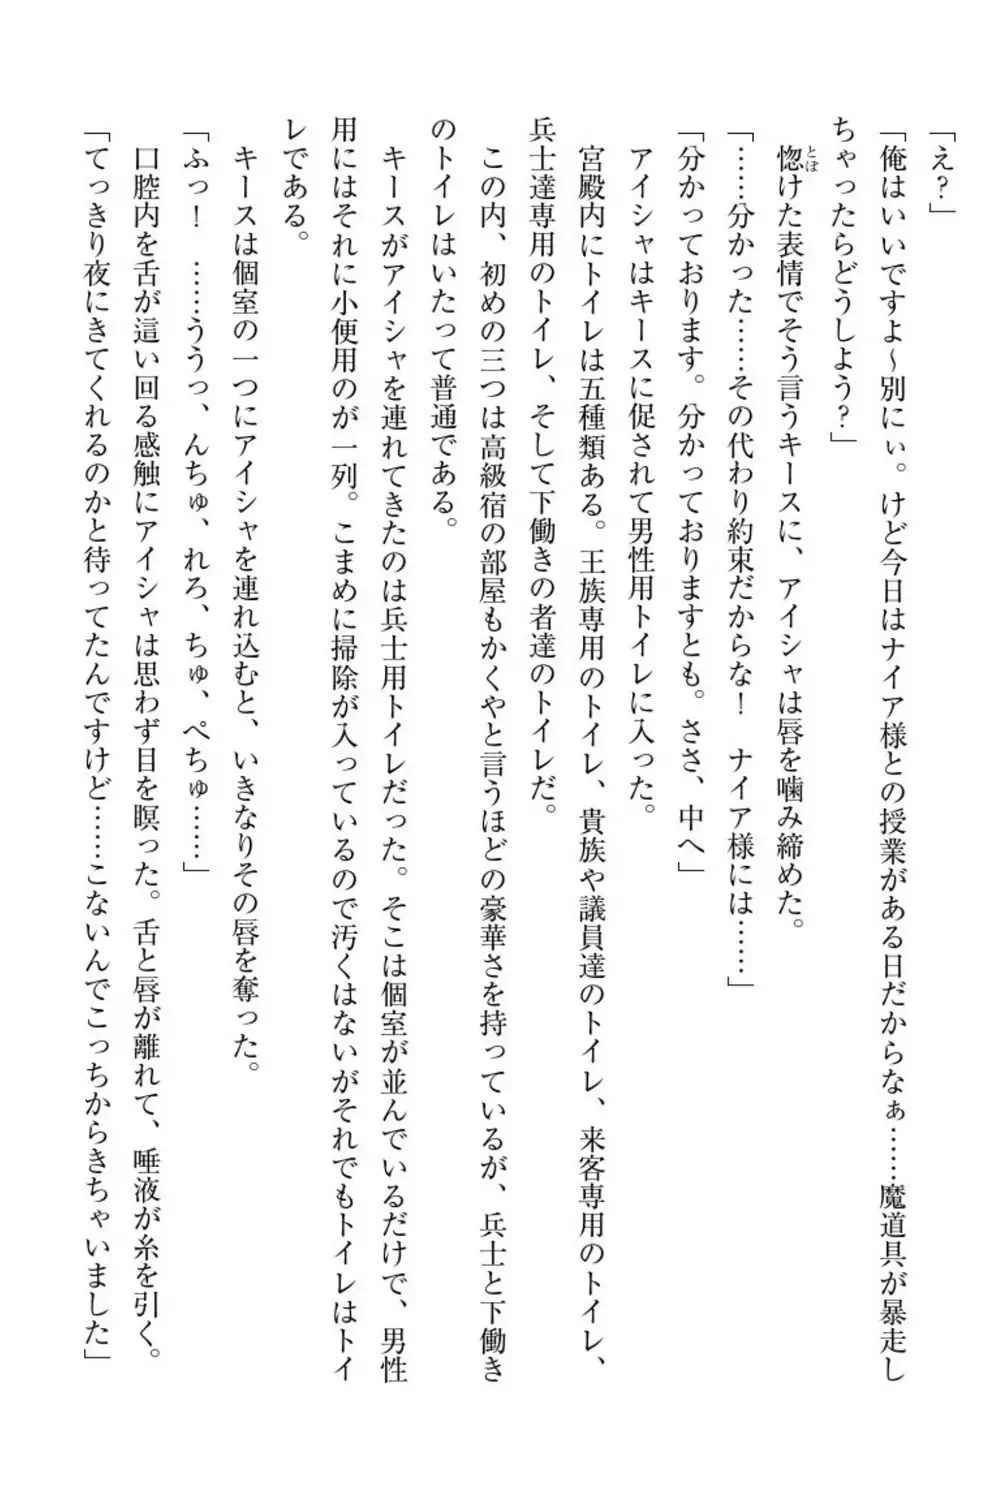 「え？」
「俺はいいですよ～別にぃ。けど今日はナイア様との授業がある日だからなぁ……魔道具が暴走し
ちゃったらどうしよう？」
惚けた表情でそう言うキースに、アイシャは唇を噛み締めた。
とぼ
「……分かった……その代わり約束だからな！　ナイア様には……」
「分かっております。分かっておりますとも。ささ、中へ」
アイシャはキースに促されて男性用トイレに入った。
宮殿内にトイレは五種類ある。王族専用のトイレ、貴族や議員達のトイレ、来客専用のトイレ、
兵士達専用のトイレ、そして下働きの者達のトイレだ。
この内、初めの三つは高級宿の部屋もかくやと言うほどの豪華さを持っているが、兵士と下働き
のトイレはいたって普通である。
キースがアイシャを連れてきたのは兵士用トイレだった。そこは個室が並んでいるだけで、男性
用にはそれに小便用のが一列。こまめに掃除が入っているので汚くはないがそれでもトイレはトイ
レである。
キースは個室の一つにアイシャを連れ込むと、いきなりその唇を奪った。
「ふっ！　……ううっ、んちゅ、れろ、ちゅ、ぺちゅ……」
口腔内を舌が這い回る感触にアイシャは思わず目を瞑った。舌と唇が離れて、唾液が糸を引く。
「てっきり夜にきてくれるのかと待ってたんですけど……こないんでこっちからきちゃいました」